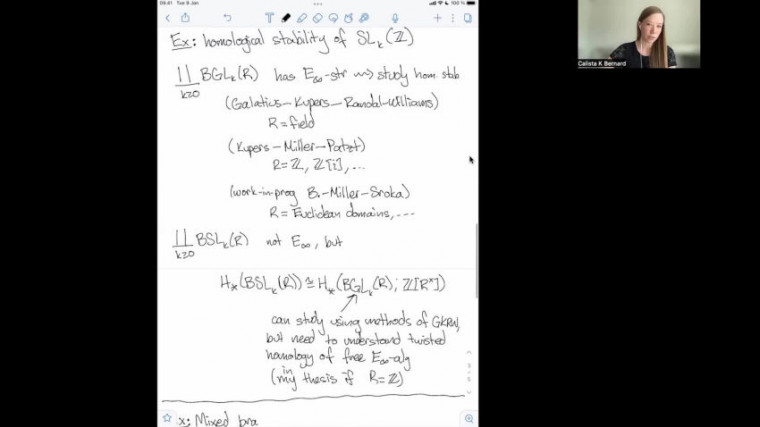 09:41 Tue 9 Jan
100 %
Ex: homological stability of SLₖ(ℤ)
∐ BGLₖ(R) has E∞-str ⇝ study hom stab
k≥0
(Galatius–Kupers–Randal-Williams)
R = field
(Kupers–Miller–Patzt)
R = ℤ, ℤ[i], ...
(work-in-prog B.–Miller–Sroka)
R = Euclidean domains, ...
∐ BSLₖ(R) not E∞, but
k≥0
H_*(BSLₖ(R)) ≅ H_*(BGLₖ(R); ℤ[R^×])
can study using methods of GKRW,
but need to understand twisted
homology of free E∞-alg
(in my thesis if R = ℤ)
Ex: Mixed bra
Calista K Bernard